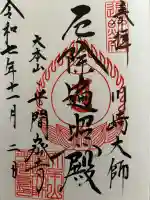 奉拝
川崎大師
厄除遍照殿
大本山
平間寺
令和七年十一月二